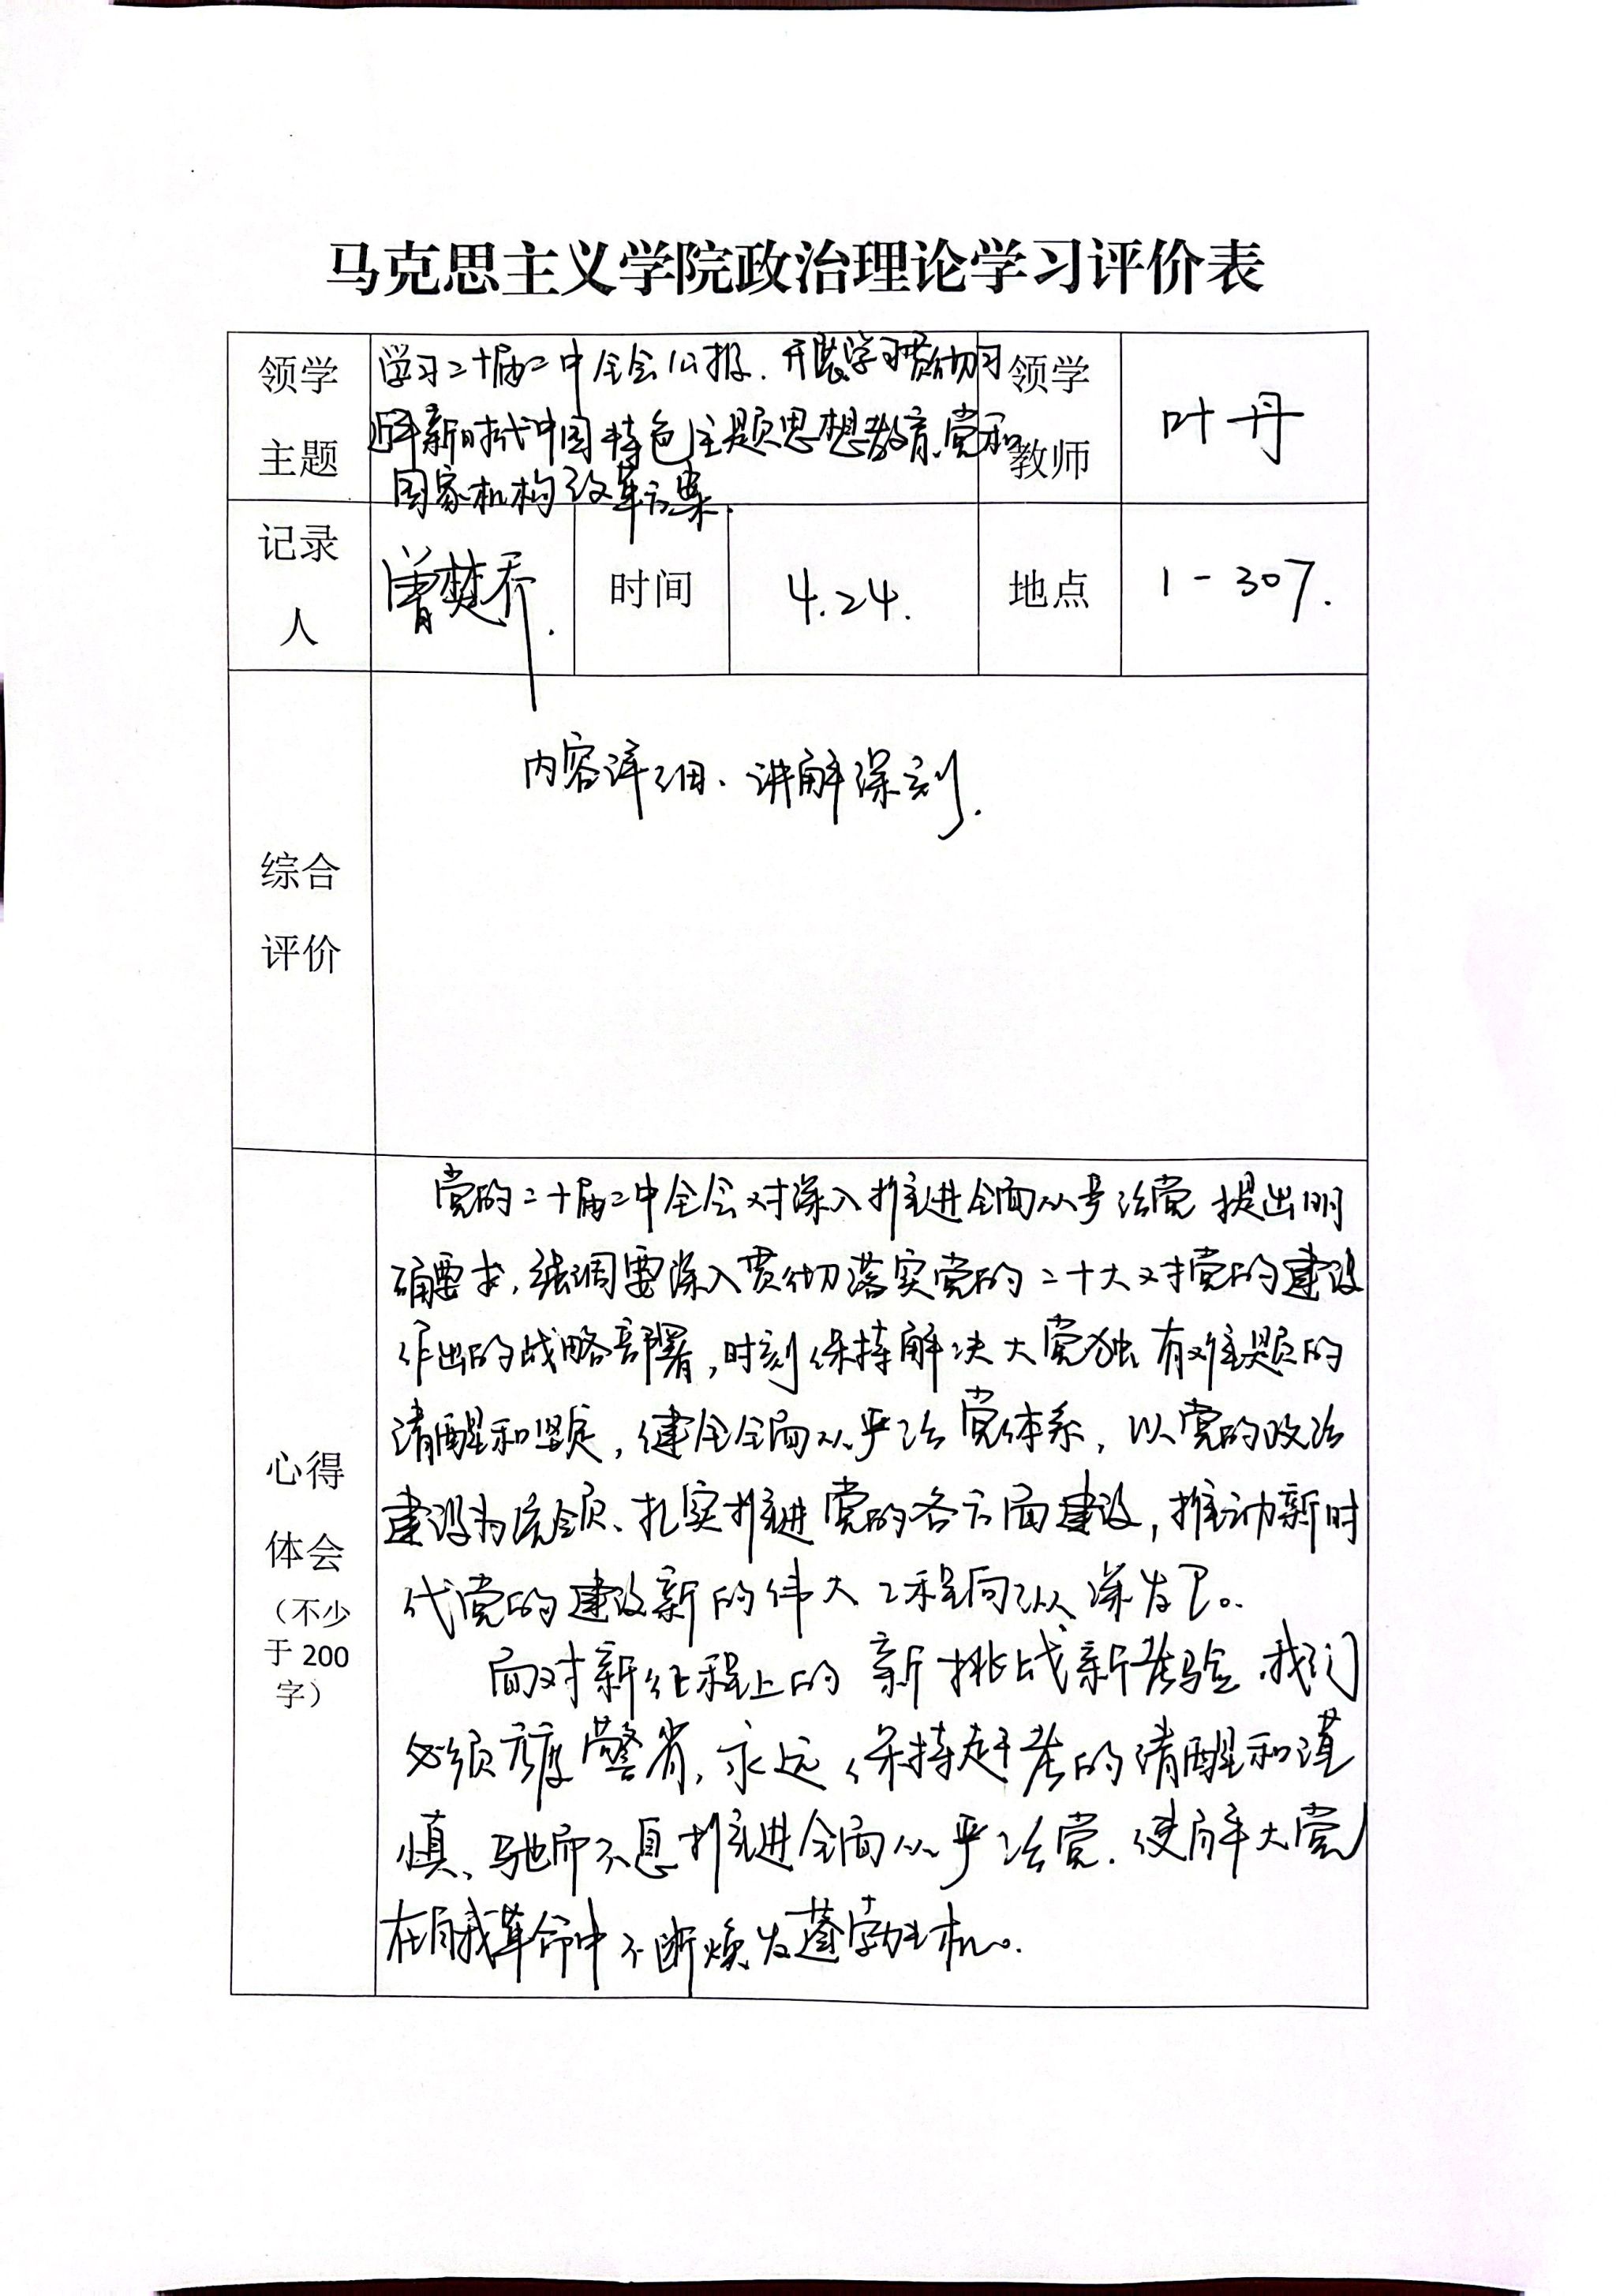 马克思主义学院政治理论学习评价表
领学
主题
学习二十届二中全会公报、开展学习贯彻习
近平新时代中国特色主题思想教育、党和
国家机构改革方案.
领学
教师
叶丹
记录
人
曾楚乔.
时间
4.24.
地点
1-307.
综合
评价
内容详细、讲解深刻.
心得
体会
（不少
于200
字）
党的二十届二中全会对深入推进全面从严治党提出明
确要求,强调要深入贯彻落实党的二十大对党的建设
作出的战略部署,时刻保持解决大党独有难题的
清醒和坚定,健全全面从严治党体系,以党的政治
建设为统领、扎实推进党的各方面建设,推动新时
代党的建设新的伟大工程向纵深发展。
面对新征程上的新挑战新考验,我们
必须高度警省,永远保持赶考的清醒和谨
慎、驰而不息推进全面从严治党.使百年大党
在自我革命中不断焕发蓬勃生机。